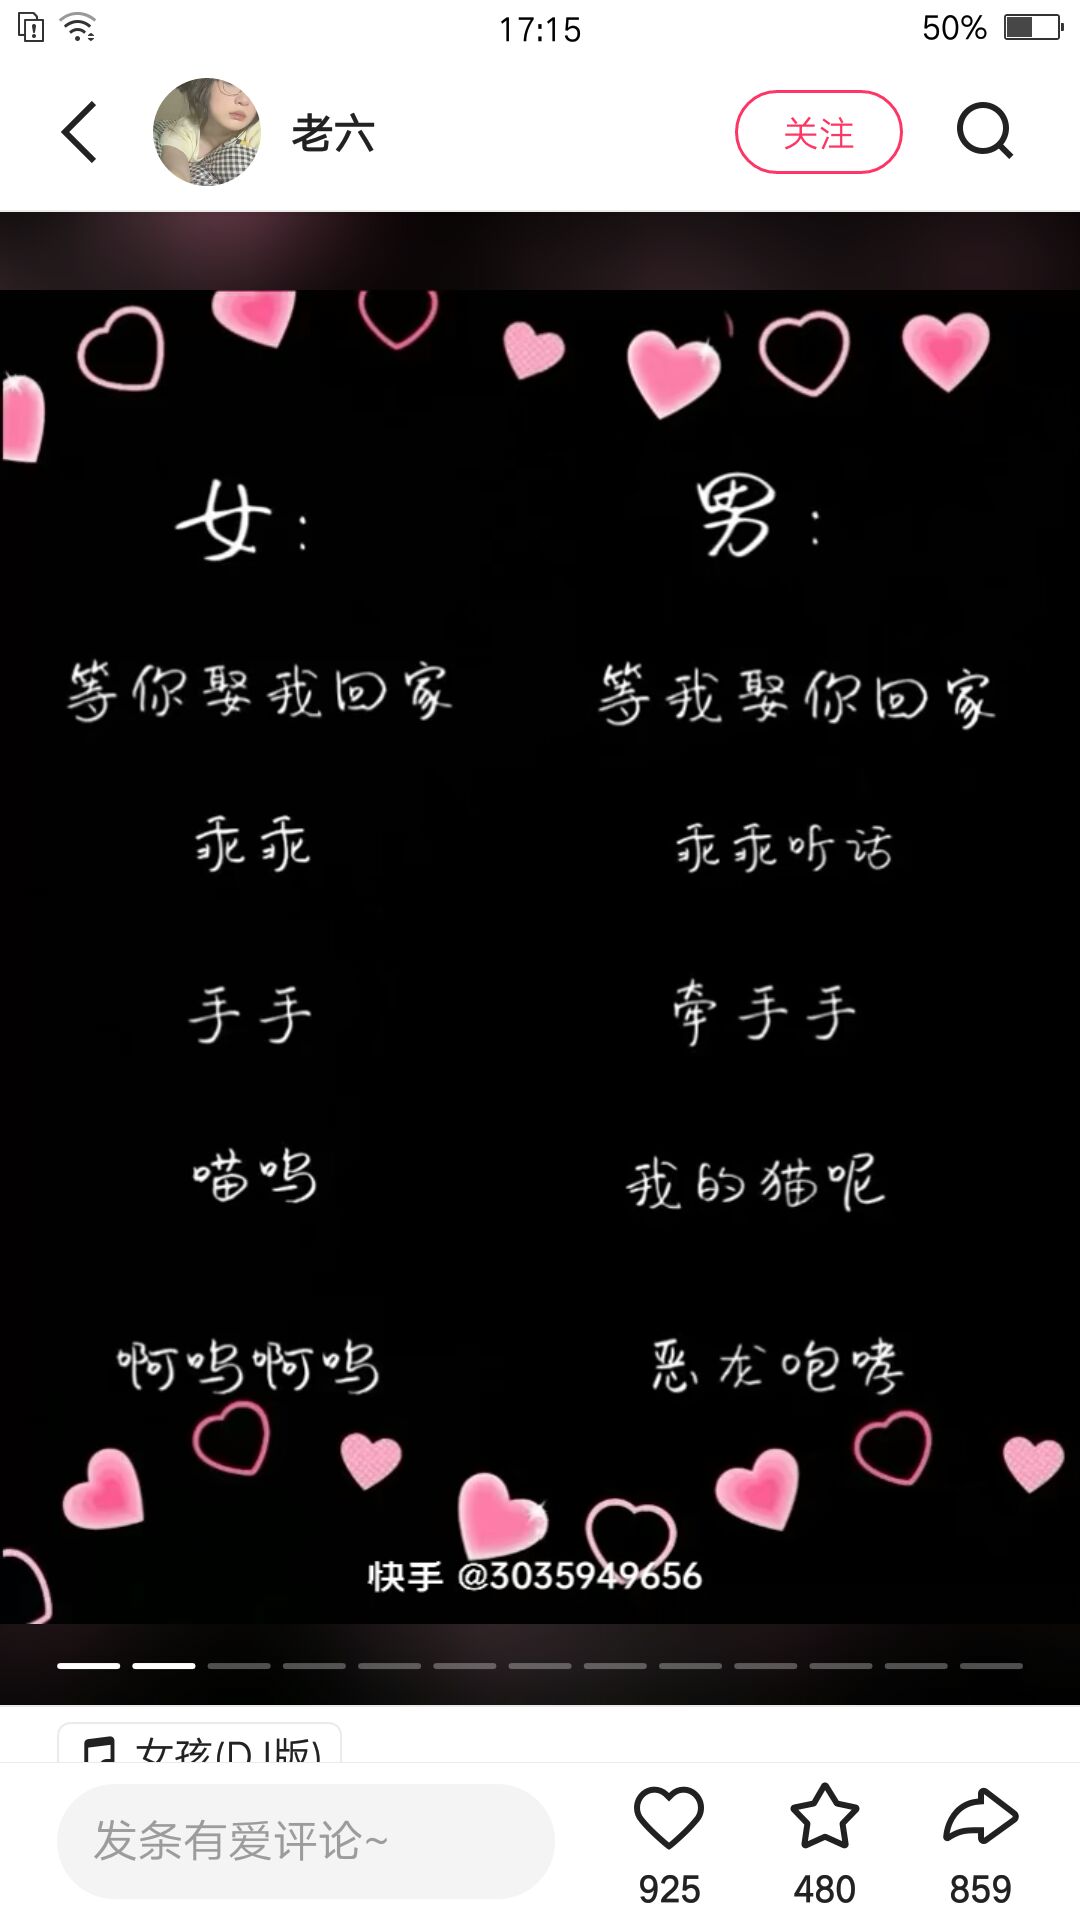 17:15
50%
老六
关注
女：
男：
等你娶我回家
等我娶你回家
乖乖
乖乖听话
手手
牵手手
喵呜
我的猫呢
啊呜啊呜
恶龙咆哮
快手 @3035949656
女孩(DJ版)
发条有爱评论~
925
480
859